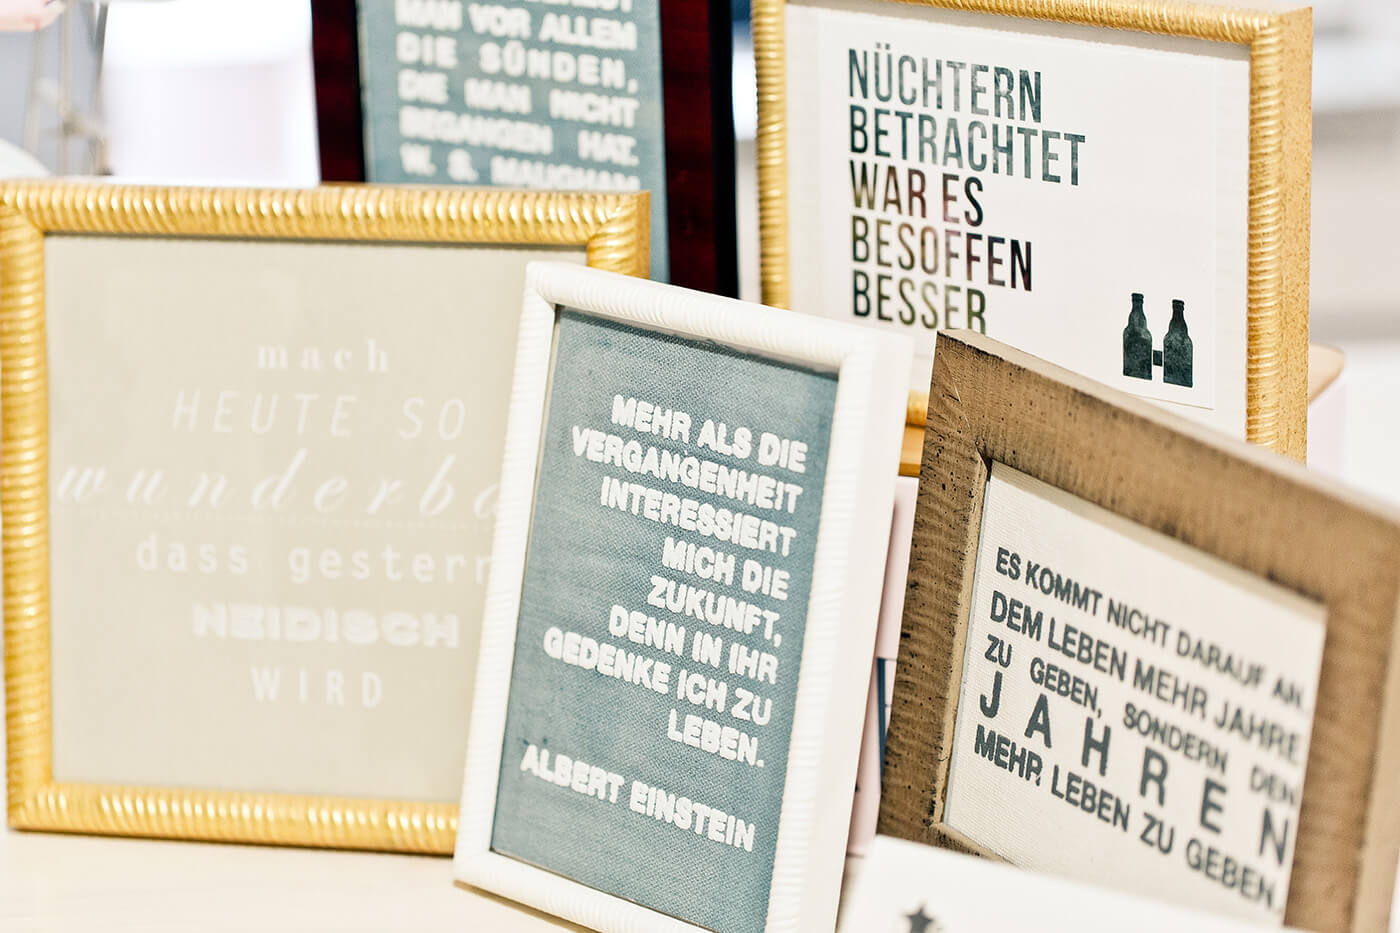 MAN VOR ALLEM
DIE SÜNDEN,
DIE MAN NICHT
BEGANGEN HAT.
W. S. MAUGHAM
NÜCHTERN
BETRACHTET
WAR ES
BESOFFEN
BESSER
mach
HEUTE SO
wunderba
dass gestern
NEIDISCH
WIRD
MEHR ALS DIE
VERGANGENHEIT
INTERESSIERT
MICH DIE
ZUKUNFT,
DENN IN IHR
GEDENKE ICH ZU
LEBEN.
ALBERT EINSTEIN
ES KOMMT NICHT DARAUF AN,
DEM LEBEN MEHR JAHRE
ZU GEBEN, SONDERN DEN
JAHREN
MEHR LEBEN ZU GEBEN.